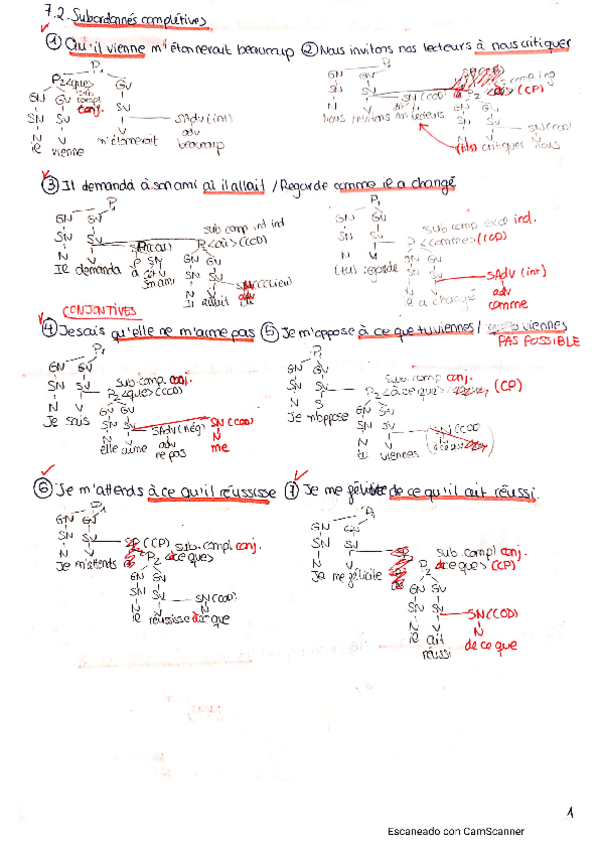 7.2. Subordonnés complétives
① Qu'il vienne m'étonnerait beaucoup ② Nous invitons nos lecteurs à nous critiquer
P₁
P₂<que> GV
sub. compl conj.
GN GV SV
SN SV SAdv(int)
N V V adv
il vienne m'étonerait beaucoup
GN GV
SN SV SN(COD) P₂ (CP)
N V
Nous invitons nos lecteurs
SN(COD)
(ils) critiquer nous
③ Il demanda à son ami où il allait / Regarde comme il a changé
P₁ P₁
GN GV sub comp int ind
SN SV P₂<où>(COD)
N V P SN GN GV
Il demanda à son ami SN SV
Il allait
GN GV sub comp excl ind.
SN SV P₂<comme>(COD)
N V GN GV
(tu) regarde SN SV SAdv (int)
N V adv
il a changé comme
CONJONTIVES
④ Je sais qu'elle ne m'aime pas ⑤ Je m'oppose à ce que tu viennes / viennes
PAS POSSIBLE
P₁
GN GV sub.comp. conj.
SN SV P₂<que>(COD)
N V GN GV
Je sais SN SV SAdv(nég) SN (COD)
N V adv N
elle aime ne pas me
P₁
GN GV sub.comp conj.
SN SV P₂<à ce que> (CP)
N V GN GV
Je m'oppose SN SV SN(COD)
N V
tu viennes
⑥ Je m'attends à ce qu'il réussisse ⑦ Je me félicite de ce qu'il ait réussi.
P₁
GN GV
SN SV SP (CP) sub. compl conj.
N V P₂ à ce que>
Je m'attends GN GV
SN SV SN(COD)
N V N
il réussisse à ce que
P₁
GN GV
SN SV SP sub. compl conj.
N V P₂ de ce que> (CP)
Je me félicite GN GV
SN SV SN(COD)
N V N
il ait réussi de ce que
1
Escaneado con CamScanner